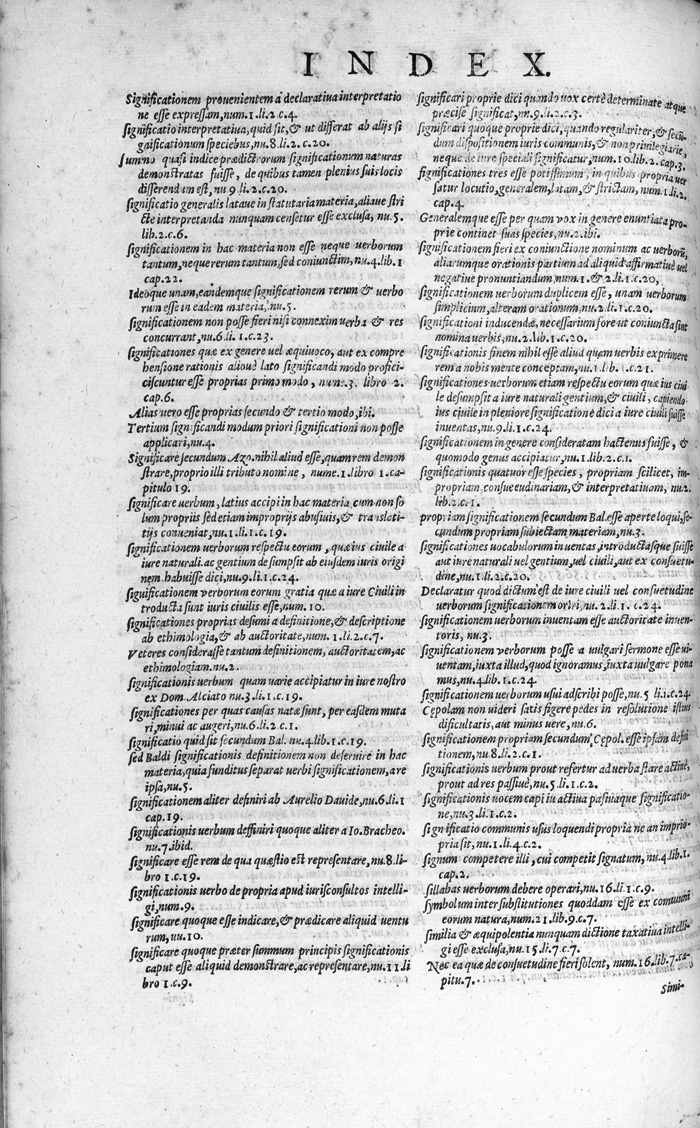 INDEX.
Significationem prouenientem à declaratiua interpretatio
ne esse expressam, num.1.li.2.c.4.
significatio interpretatiua, quid sit, & ut differat ab alijs si
gnificationum speciebus, nu.8.li.2.c.20.
summo quasi indice prædictorum significationum naturas
demonstratas fuisse, de quibus tamen plenius suis locis
differendum est, nu.9.li.2.c.20.
significatio generalis lataue in statutaria materia, aliaue stri
cte interpretanda nunquam censetur esse exclusa, nu.5.
lib.2.c.6.
significationem in hac materia non esse neque uerborum
tantum, neque rerum tantum, sed coniunctim, nu.4.lib.1
cap.22.
Ideoque unam, eandemque significationem rerum & uerbo
rum esse in eadem materia, nu.5.
significationem non posse fieri nisi connexim uerba & res
concurrant, nu.6.li.1.c.23.
significationes quæ ex genere uel æquiuoco, aut ex compre
hensione rationis alioue lato significandi modo profici-
ciscuntur esse proprias primo modo, nume.3. libro 2.
cap.6.
Alias uero esse proprias secundo & tertio modo, ibi.
Tertium significandi modum priori significationi non posse
applicari, nu.4.
Significare secundum Azo. nihil aliud esse, quam rem demon
strare, proprio illi tributo nomine, nume.1.libro 1.ca-
pitulo 19.
significare uerbum, latius accipi in hac materia cum non so
lum propriis sed etiam improprijs abusiuis, & translati-
tijs conueniat, nu.1.li.1.c.19.
significationem uerborum respectu eorum, quæ ius ciuile a
iure naturali ac gentium desumpsit ab eiusdem iuris origi
nem habuisse dici, nu.9.li.1.c.24.
siguificationem verborum eorum gratia quæ a iure Ciuili in
troducta sunt iuris ciuilis esse, num.10.
significationes proprias desumi a definitione, & descriptione
ab ethimologia, & ab auctoritate, num.1.li.2.c.7.
Veteres considerasse tantum definitionem, auctoritatem, ac
ethimologiam. nu.2.
significationis uerbum quam uarie accipiatur in iure nostro
ex Dom. Alciato nu.3.li.1.c.19.
significationes per quas causas natæ sunt, per easdem muta
ri, minui ac augeri, nu.6.li.2.c.1.
significatio quid sit secundum Bal. nu.4.lib.1.c.19.
sed Baldi significationis definitionem non deseruire in hac
materia, quia funditus separat uerbi significationem, a re
ipsa, nu.5.
significationem aliter definiri ab Aurelio Dauide, nu.6.li.1
cap.19.
significationis uerbum deffiniri quoque aliter a Io. Bracheo.
nu.7.ibid.
significare esse rem de qua quæstio est representare, nu.8.li-
bro 1.c.19.
significationis uerbo de propria apud iurisconsultos intelli-
gi, num.9.
significare quoque esse indicare, & prædicare aliquid uentu
rum, uu.10.
significare quoque præter summum principis significationis
caput esse aliquid demonstrare, ac representare, nu.11.li
bro 1.c.9.
significari proprie dici quando uox certè determinate atque
præcise significat, nu.9.li.2.c.3.
significari quoque proprie dici, quando regulariter, & secū-
dum dispositionem iuris communis, & non priuilegiarie,
neque de iure speciali significatur, num.10.lib.2.cap.3.
significationes tres esse potissimum, in quibus propria uer
satur locutio, generalem, latam, & strictam, num.1.li.2.
cap.4.
Generalemque esse per quam vox in genere enuntiata pro-
prie continet suas species, nu.2.ibi.
significationem fieri ex coniunctione nominum ac uerborū,
aliarumque orationis partium ad aliquid affirmatiuè uel
negatiue pronuntiandum, num.1.& 2.li.1.c.20.
significationem uerborum duplicem esse, unam uerborum
simplicium, alteram orationum, nu.2.li.1.c.20.
significationi inducendæ, necessarium fore ut coniuncta sint
nomina uerbis, nu.2.lib.1.c.20.
significationis finem nihil esse aliud quam uerbis exprimere
rem a nobis mente conceptam, nu.1.lib.1.c.21.
significationes uerborum etiam respectu eorum quæ ius ciui
le desumpsit a iure naturali gentium, & ciuili, capiendo
ius ciuile in pleniore significatione dici a iure ciuili fuisse
inuentas, nu.9.li.1.c.24.
significationem in genere consideratam hactenus fuisse, &
quomodo genus accipiatur, nu.1.lib.2.c.1.
significationis quatuor esse species, propriam scilicet, im-
propriam, consueudinariam, & interpretatiuam, nu.2.
lib.2.c.1.
propriam significationem secundum Bal. esse aperte loqui, se-
cundum propriam subiectam materiam, nu.3.
significationes uocabulorum inuentas, introductasque fuisse
aut iure naturali uel gentium, uel ciuili, aut ex consuetu-
dine, nu.1.li.2.c.20.
Declaratur quod dictum est de iure ciuili uel consuetudine
uerborum significationem oriri, nu.2.li.1.c.24.
significationem uerborum inuentam esse auctoritate inuen-
toris, nu.3.
significationem verborum posse a uulgari sermone esse ui-
uentam, iuxta illud, quod ignoramus, iuxta uulgare pona
mus, nu.4.lib.1.c.24.
significationem uerborum usui adscribi posse, nu.5 li.1.c.24
Cepolam non uideri satis figere pedes in resolutione istius
dificultatis, aut minus uere, nu.6.
significationem propriam secundum Cepol. esse ipsam defini
tionem, nu.8.li.2.c.1.
significationis uerbum prout refertur ad uerba stare actiuè,
prout ad res passiuè, nu.5.li.1.c.2.
significationis uocem capi in actiua pasiuaque significatio-
ne, nu.3.li.1.c.2.
significatio communis usus loquendi propria ne an impro-
pria sit, nu.1.li.4.c.2.
signum competere illi, cui competit signatum, nu.4.lib.1.
cap.2.
sillabas uerborum debere operari, nu.16.li.1.c.9.
symbolum inter substitutiones quoddam esse ex communi
eorum natura, num.21.lib.9.c.7.
similia & æquipolentia nunquam dictione taxatiua intelli-
gi esse exclusa, nu.15.li.7.c.7.
Nec ea quæ de consuetudine fieri solent, num.16.lib.7.ca-
pitu.7.
Simi-